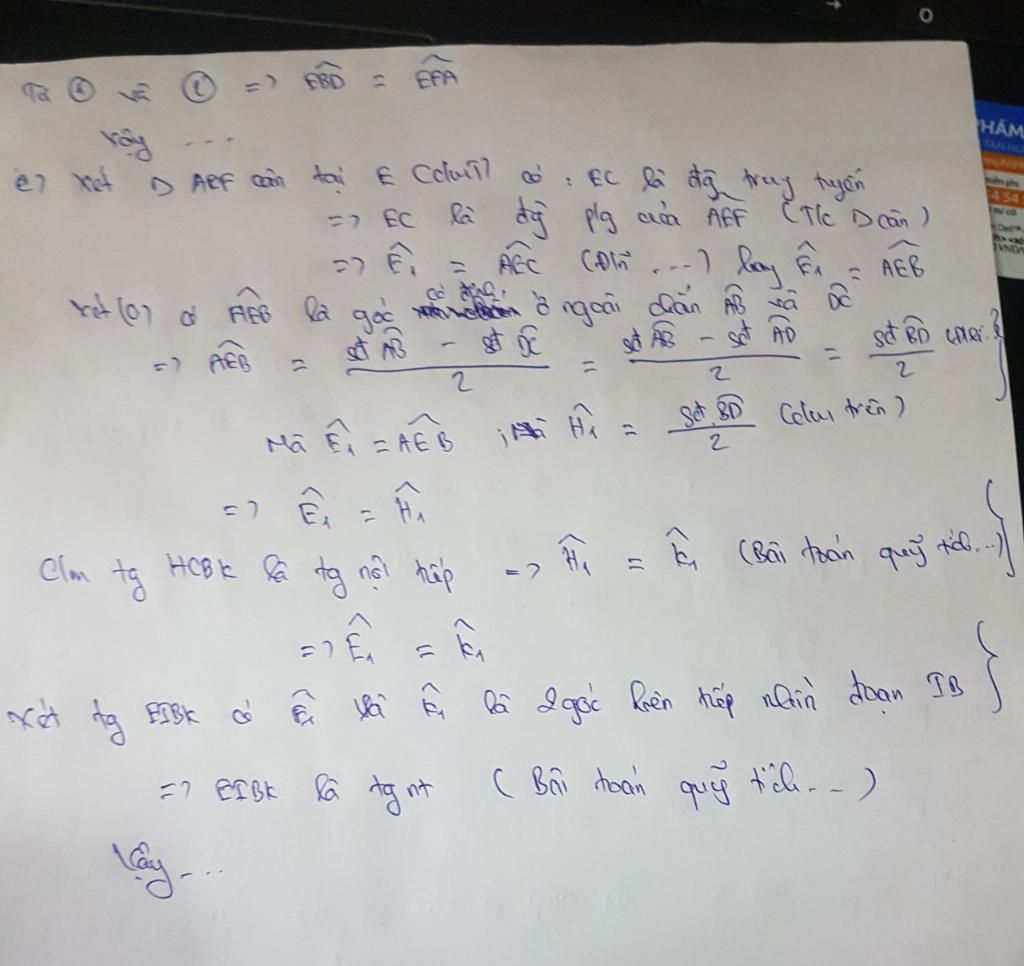 Từ ① và ② => EBD̂ = EFÂ
Vậy ...
e) Xét Δ AEF cân tại E (cmt) có : EC là đg trung tuyến
=> EC là đg p/g của AEF̂ (T/c Δ cân)
=> Ê₁ = AEĈ (ĐN ...) hay Ê₁ = AEB̂
Xét (O) có AEB̂ là góc có đỉnh ở ngoài chắn AB̂ và DĈ
=> AEB̂ = (sđ AB̂ - sđ DĈ)/2 = (sđ AB̂ - sđ AD̂)/2 = sđ BD̂/2
Mà Ê₁ = AEB̂ ; Ĥ₁ = sđ BD̂/2 (cm trên)
=> Ê₁ = Ĥ₁
Cm tg HCBK là tg nội tiếp => Ĥ₁ = K̂₁ (Bài toán quỹ tích...)
=> Ê₁ = K̂₁
Xét tg EIBK có Ê₁ và K̂₁ là 2 góc liên tiếp nhìn đoạn IB
=> EIBK là tgnt (Bài toán quỹ tích...)
Vậy ...
PHẨM